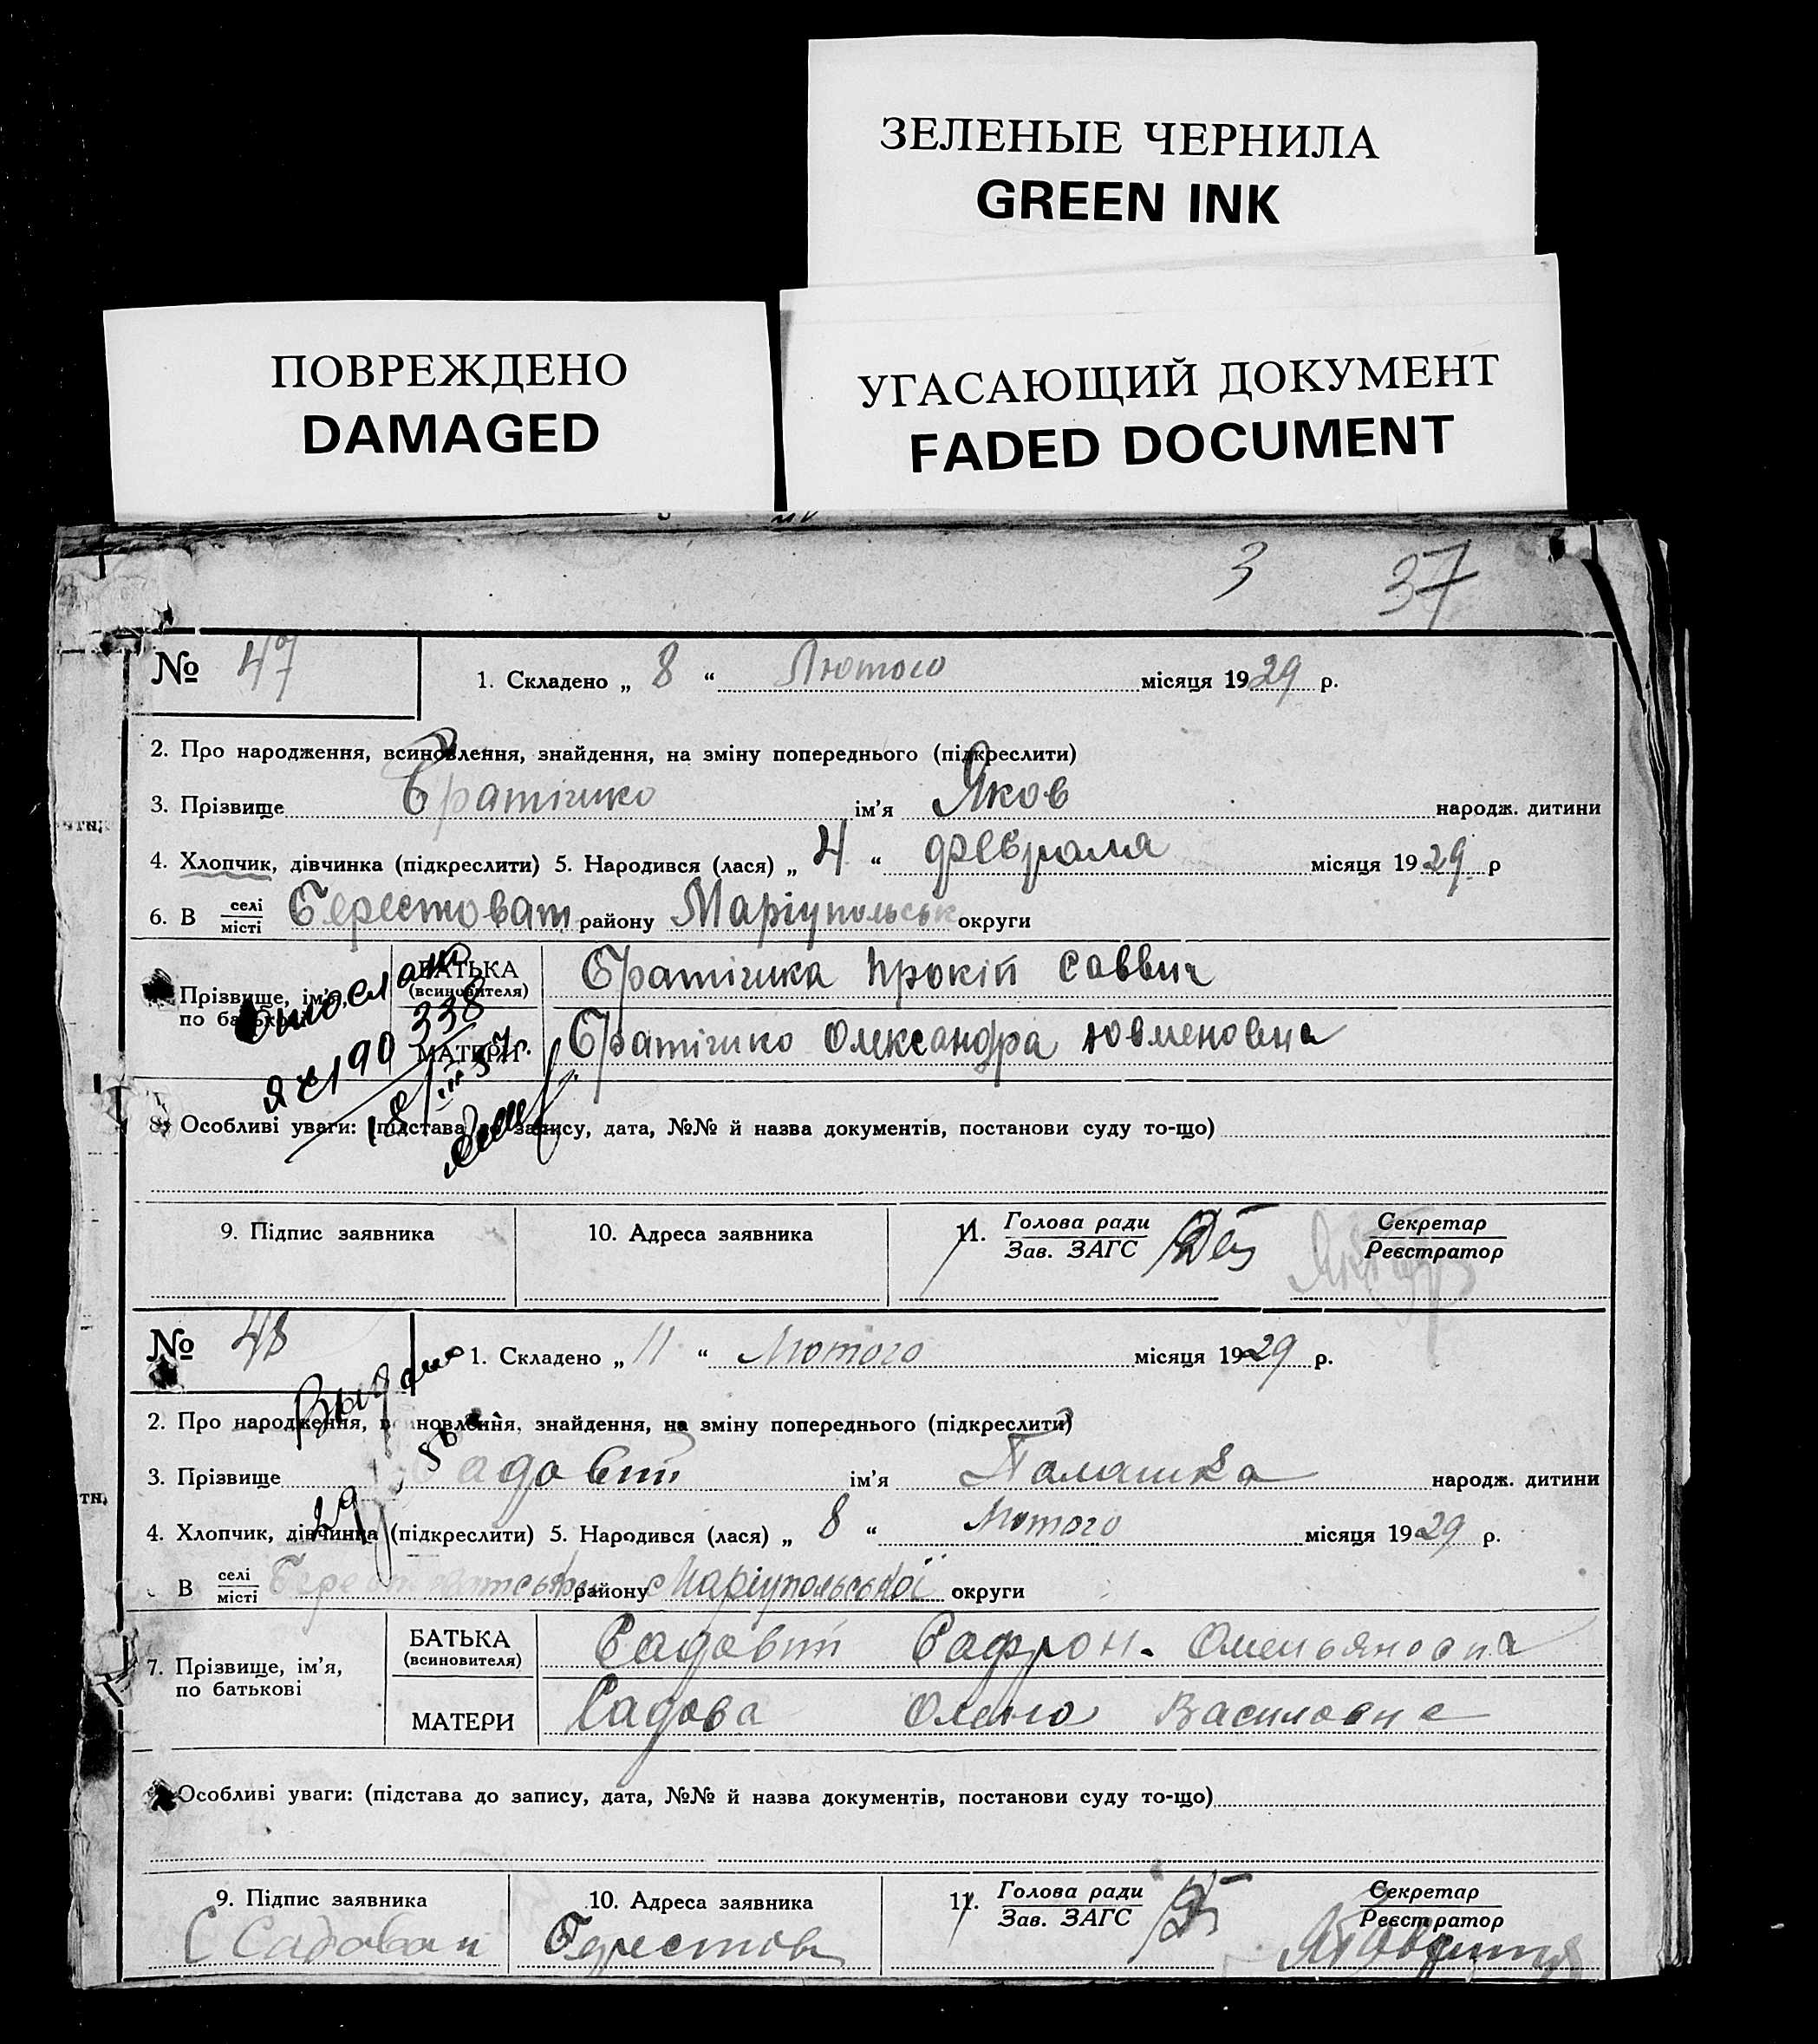 ЗЕЛЕНЫЕ ЧЕРНИЛА
GREEN INK
ПОВРЕЖДЕНО
DAMAGED
УГАСАЮЩИЙ ДОКУМЕНТ
FADED DOCUMENT
3 37
№ 47 1. Складено „ 8 “ Лютого місяця 1929 р.
2. Про народження, всиновлення, знайдення, на зміну попереднього (підкреслити)
3. Прізвище Братішко ім’я Яков народж. дитини
4. Хлопчик, дівчинка (підкреслити) 5. Народився (лася) „ 4 “ февраля місяця 1929 р
6. В селі місті Берестоват району Маріупольськ округи
Прізвище, ім’я, по батькові
БАТЬКА (всиновителя) Братішка Прокій Саввич
МАТЕРИ Братішко Олександра
338
8. Особливі уваги: (підстава до запису, дата, №№ й назва документів, постанови суду то-що)
9. Підпис заявника 10. Адреса заявника 11. Голова ради Зав. ЗАГС Секретар Реєстратор
№ 48 1. Складено „ 11 “ Лютого місяця 1929 р.
Выдано
2. Про народження, всиновлення, знайдення, на зміну попереднього (підкреслити)
3. Прізвище Садовий ім’я Палашка народж. дитини
4. Хлопчик, дівчинка (підкреслити) 5. Народився (лася) „ 8 “ Лютого місяця 1929 р.
В селі місті району Маріупольської округи
7. Прізвище, ім’я, по батькові
БАТЬКА (всиновителя) Садовий Сафрон Омельяновна
МАТЕРИ Садова Олена Василовна
Особливі уваги: (підстава до запису, дата, №№ й назва документів, постанови суду то-що)
9. Підпис заявника 10. Адреса заявника 11. Голова ради Зав. ЗАГС Секретар Реєстратор
С Садовай Берестов